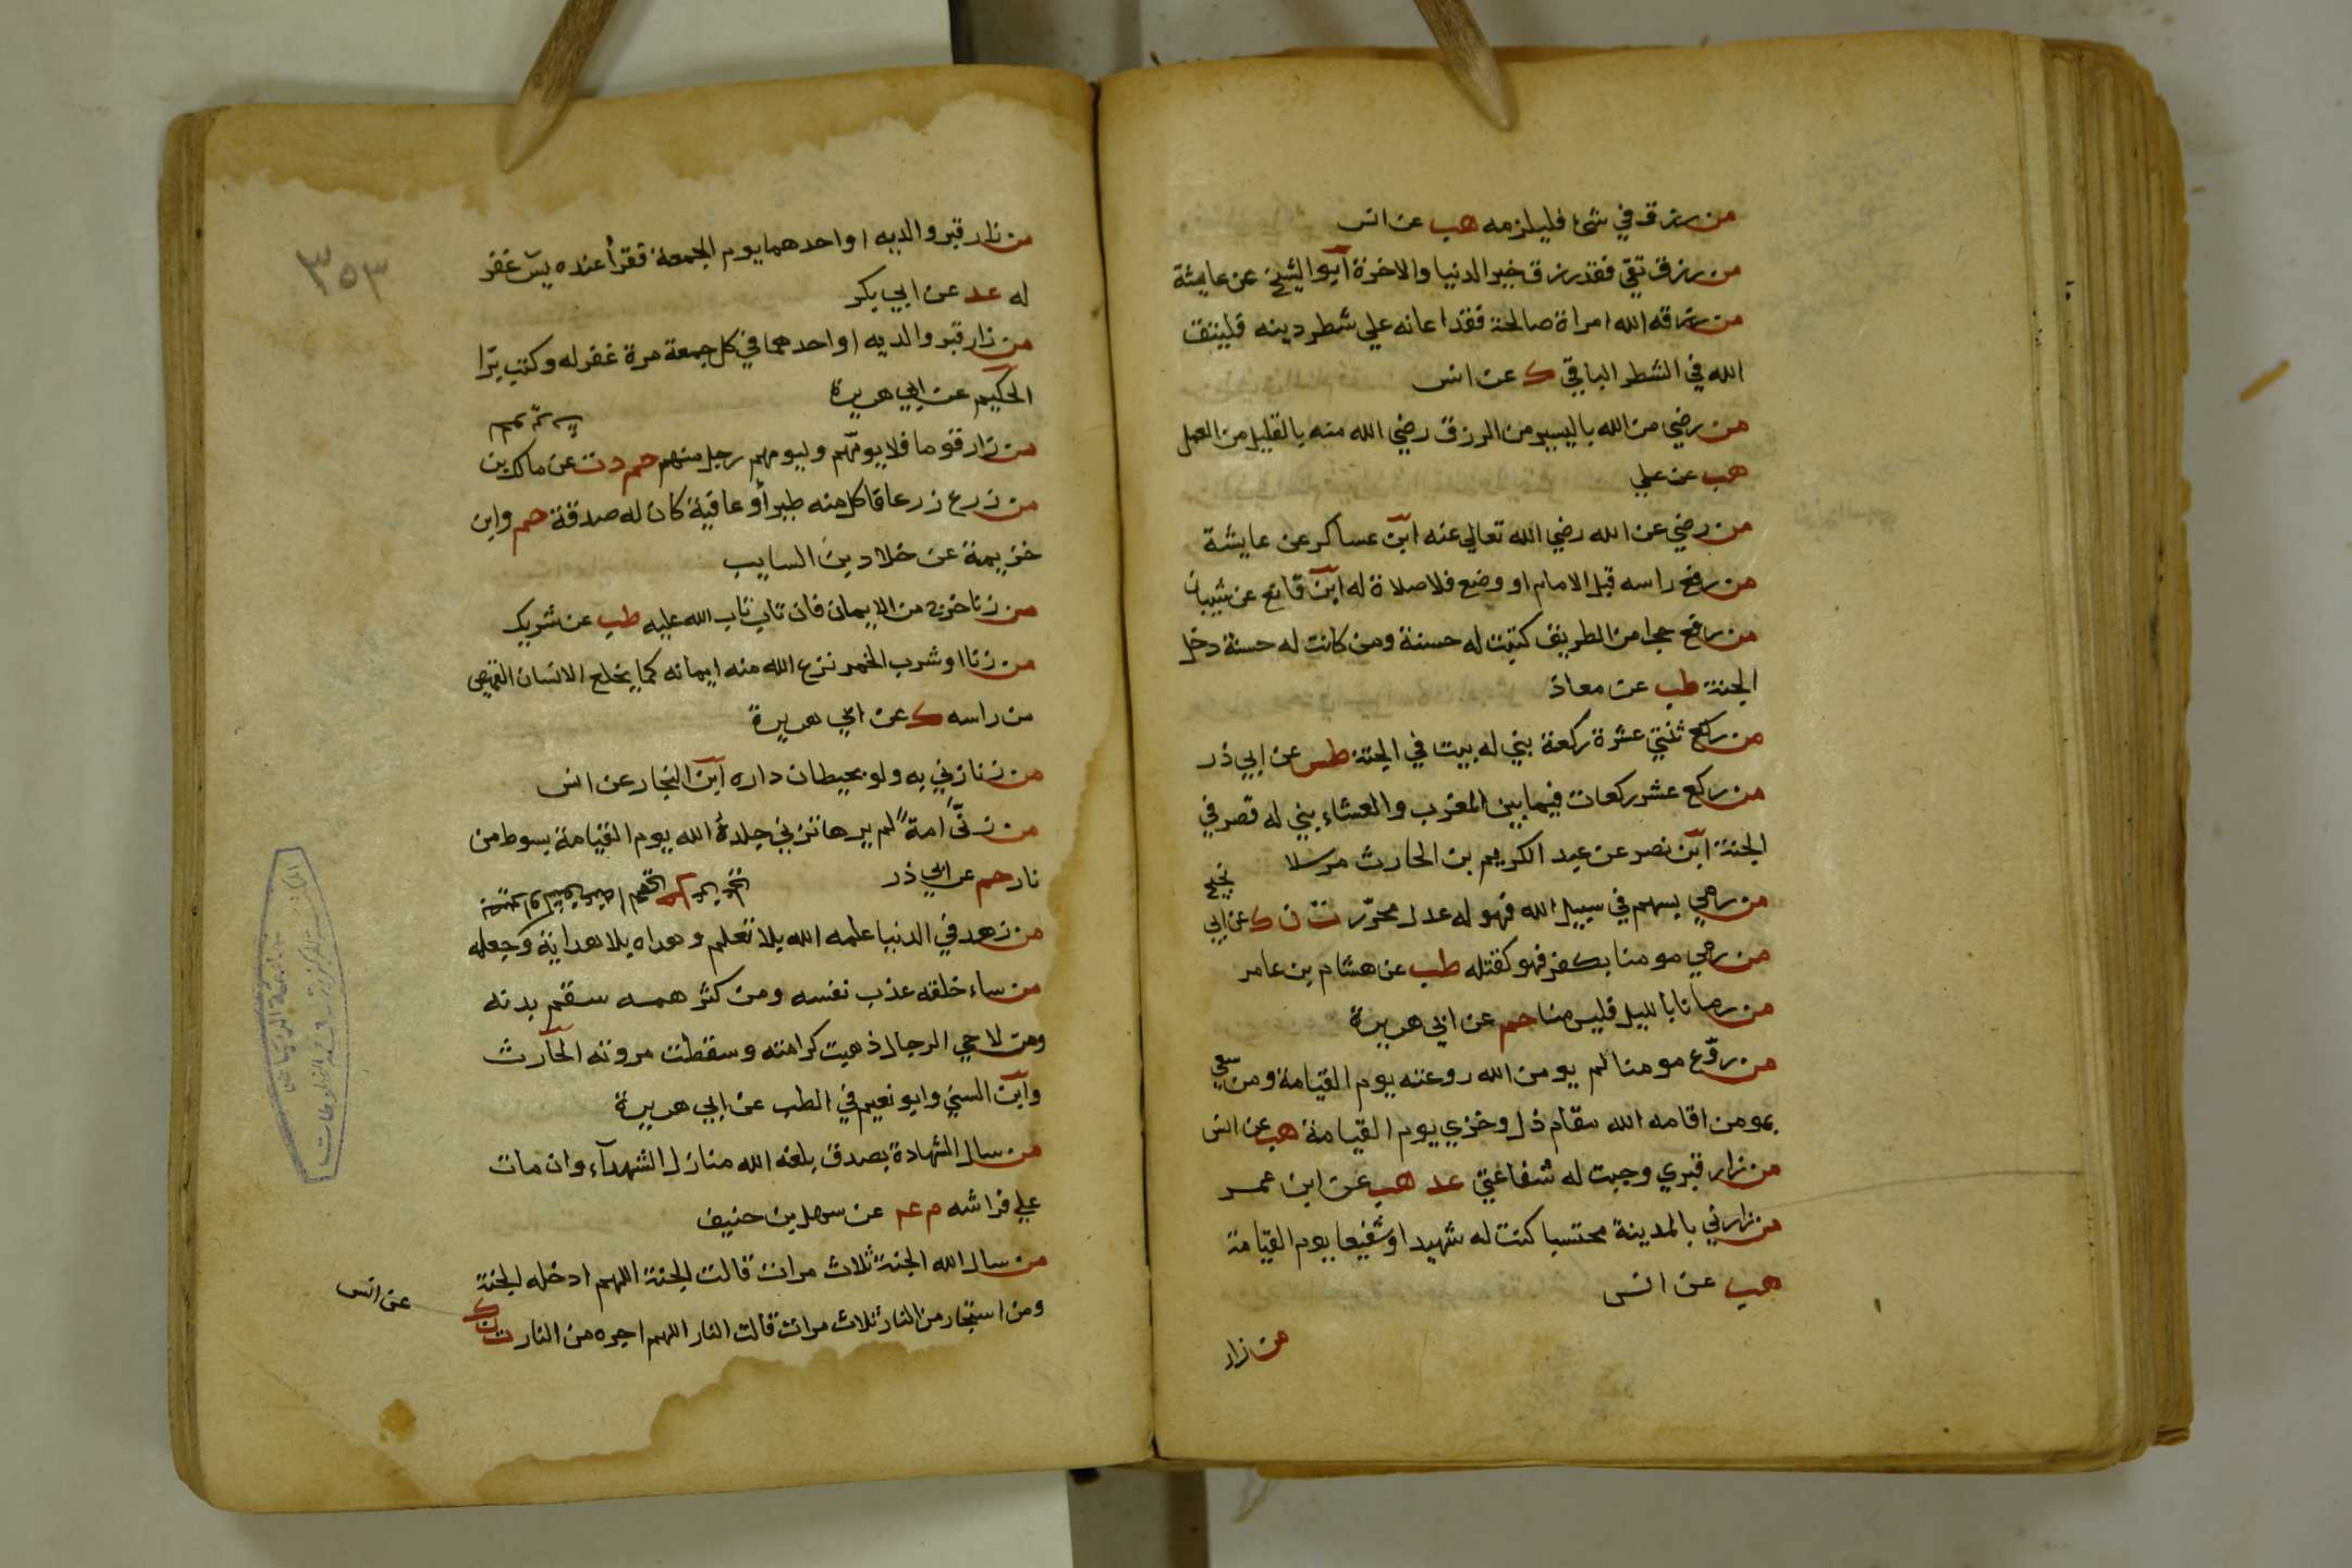 من رزق في شئ فليلزمه هب عن انس
من رزق تقى فقد رزق خير الدنيا والاخرة ابو الشيخ عن عايشة
من رزقه الله امراة صالحة فقد اعانه علي شطر دينه فليتق
الله في الشطر الباقي ك عن انس
من رضي من الله باليسير من الرزق رضي الله منه بالقليل من العمل
هب عن علي
من رضي عن الله رضي الله تعالي عنه ابن عساكر عن عايشة
من رفع راسه قبل الامام او وضع فلا صلاة له ابن قانع عن شيبان
من رفع حجرا من الطريق كتبت له حسنة ومن كانت له حسنة دخل
الجنة طب عن معاذ
من ركع ثنتي عشرة ركعة بني له بيت في الجنة طس عن ابي ذر
من ركع عشر ركعات فيما بين المغرب والعشاء بني له قصر في
الجنة ابن نصر عن عبد الكريم بن الحارث مرسلا
من رمي بسهم في سبيل الله فهو له عدل محرّر ت ن ك عن ابي نجيح
من رمي مومنا بكفر فهو كقتله طب عن هشام بن عامر
من رمانا بالليل فليس منا حم عن ابي هريرة
من روّع مومنا لم يومن الله روعته يوم القيامة ومن سعي
بمومن اقامه الله مقام ذل وخزي يوم القيامة هب عن انس
من زار قبري وجبت له شفاعتي عد هب عن ابن عمر
من زارني بالمدينة محتسبا كنت له شهيدا او شفيعا يوم القيامة
هب عن انس
من زار
٣٥٣
من زار قبر والديه او احدهما يوم الجمعة فقرأ عنده يس غفر
له عد عن ابي بكر
من زار قبر والديه او احدهما في كل جمعة مرة غفر له وكتب برّا
الحكيم عن ابي هريرة
من زار قوما فلا يومّهم وليومهم رجل منهم حم د ت عن مالك بن
من زرع زرعا فاكل منه طير أو عافية كان له صدقة حم وابن
خزيمة عن خلاد بن السايب
من زنا خرج من الايمان فان تاب تاب الله عليه طب عن شريك
من زنا او شرب الخمر نزع الله منه ايمانه كما يخلع الانسان القميص
من راسه ك عن ابي هريرة
من زنا زني به ولو بحيطان داره ابن النجار عن انس
من زنّى امةً لم يرها تزني جلدهُ الله يوم القيامة بسوط من
نار حم عن ابي ذر
من زهد في الدنيا علمه الله بلا تعلم وهداه بلا هداية وجعله
من ساء خلقه عذب نفسه ومن كثر همه سقم بدنه
ومن لاحي الرجال ذهبت كرامته وسقطت مروته الحارث
وابن السني وابو نعيم في الطب عن ابي هريرة
من سال الشهادة بصدق بلغه الله منازل الشهدآء وان مات
علي فراشه م عم عن سهل بن حنيف
من سال الله الجنة ثلاث مرات قالت الجنة اللهم ادخله الجنة
ومن استجار من النار ثلاث مرات قالت النار اللهم اجره من النار ت ن ك
عن انس